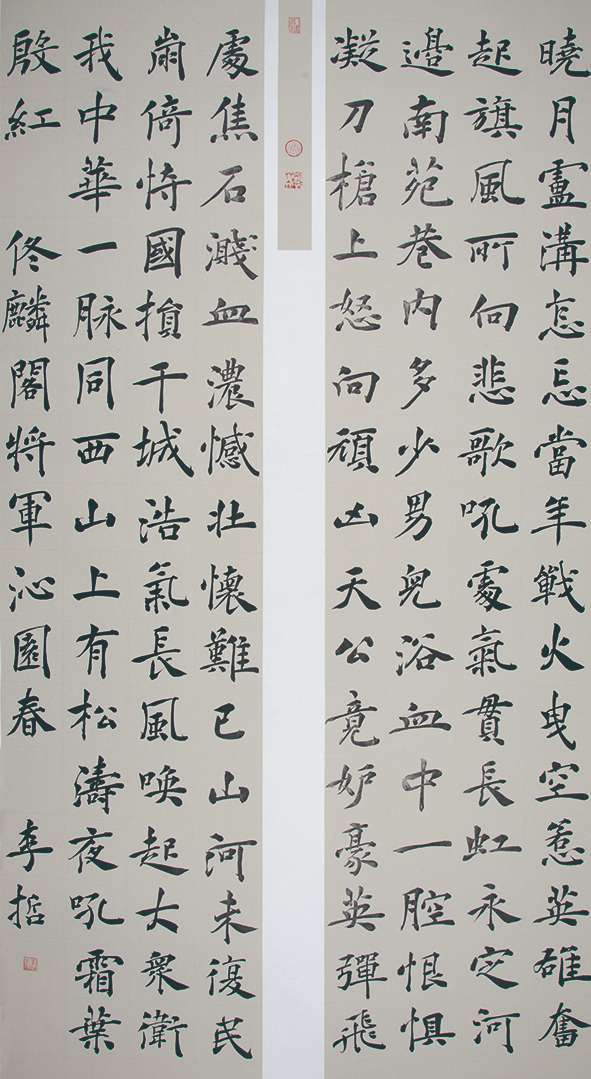 曉月盧溝怎忘當年戰火曳空惹英雄奮
起旗風所向悲歌吼處氣貫長虹永定河
邊南苑巷内多少男兒浴血中一腔恨惧
凝刀槍上怒向頑凶天公竟妒豪英彈飛
處焦石濺血濃憾壯懷難已山河未復民
崩倚恃國損干城浩氣長風喚起大衆衛
我中華一脉同西山上有松濤夜吼霜葉
殷紅 佟麟閣將軍沁園春 李哲